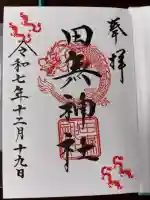 奉拝
田無神社
令和七年十二月十九日